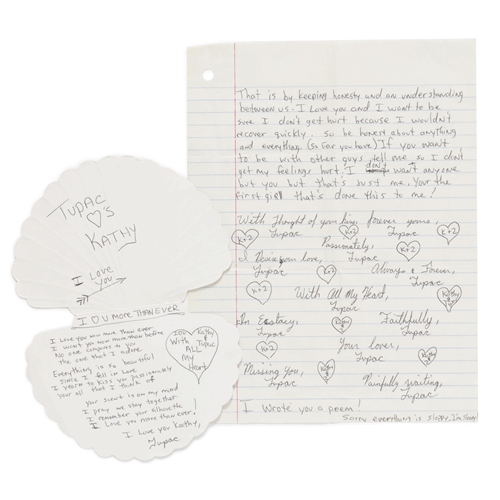 TUPAC
♡'S
KATHY
I LOVE
YOU
I LOVE YOU MORE THAN EVER
I Love you now more than ever
I want you now more than before
No one compares to you
the one that I adore
Everything is so beautiful
since I fell in love
I yearn to kiss you passionately
your all that I think of
your scent is on my mind
I pray we stay together
I remember your silhouette
I Love you more than ever!
I Love you Kathy,
Tupac
With
ALL
My
Heart
Kathy
&
Tupac
That is by keeping honesty and an understanding
between us. I Love you and I want to be
sure I don't get hurt because I wouldn't
recover quickly. So be honest about anything
and everything. (So Far you have) If you want
to be with other guys tell me so I don't
get my feelings hurt. I don't want anyone
but you but that's just me. Your the
first girl that's done this to me!
With Thought of your kiss, forever yours,
Tupac
K+2
Tupac
K+2
Passionately,
Tupac
K+2
I Need your love,
Tupac
K+2
Always & Forever,
Tupac
K+2
With All My Heart,
Tupac
In Ecstacy,
Tupac
Faithfully,
Tupac
K+2
Your lover,
Tupac
Missing You,
Tupac
Painfully waiting,
Tupac
I Wrote you a poem!
Sorry everything is sloppy, I'm